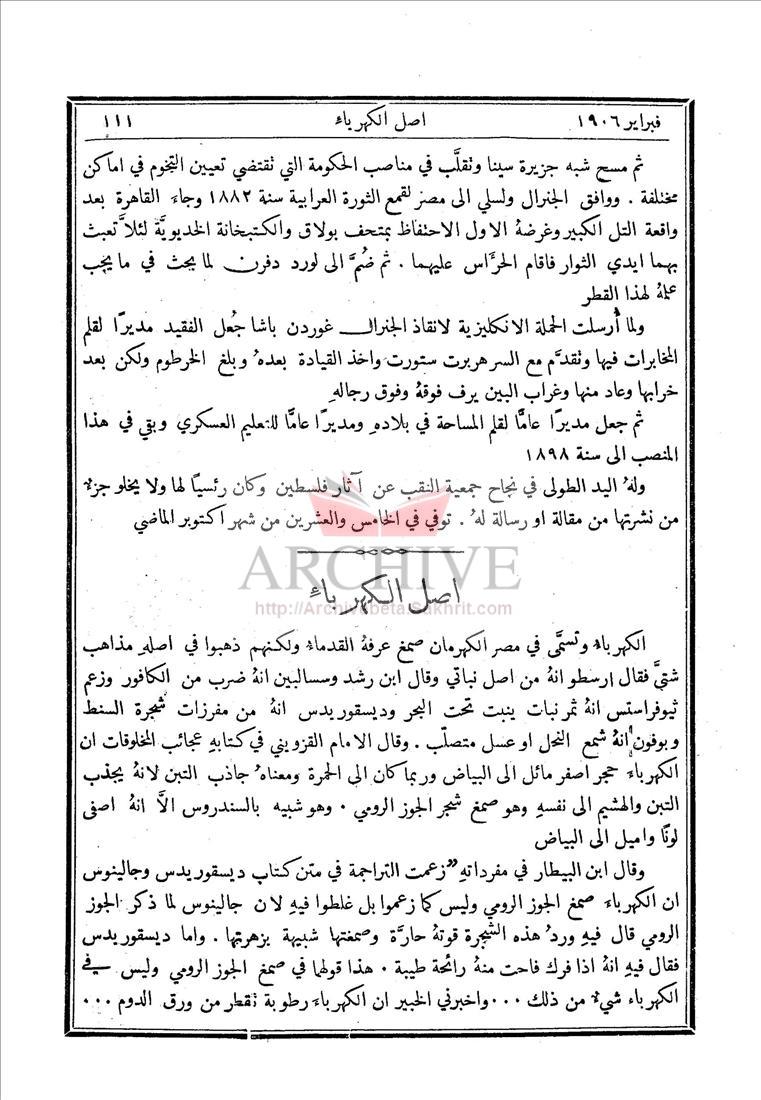 فبراير ١٩٠٦ اصل الكهرباء ١١١
ثم مسح شبه جزيرة سينا وتقلَّب في مناصب الحكومة التي تقتضي تعيين التخوم في اماكن
مختلفة . ووافق الجنرال ولسلي الى مصر لقمع الثورة العرابية سنة ١٨٨٢ وجاء القاهرة بعد
واقعة التل الكبير وغرضهُ الاول الاحتفاظ بمتحف بولاق والكتبخانة الخديويَّة لئلاَّ تعبث
بهما ايدي الثوار فاقام الحرَّاس عليهما . ثم ضُمَّ الى لورد دفرن لما بحث في ما يجب
عملهُ لهذا القطر
ولما أُرسلت الحملة الانكليزية لانقاذ الجنرال غوردن باشا جُعل الفقيد مديرًا لقلم
المخابرات فيها وتقدَّم مع السر هربرت ستورت واخذ القيادة بعدهُ وبلغ الخرطوم ولكن بعد
خرابها وعاد منها وغراب البين يرف فوقهُ وفوق رجالهِ
ثم جعل مديرًا عامًّا لقلم المساحة في بلادهِ ومديرًا عامًّا للتعليم العسكري وبقي في هذا
المنصب الى سنة ١٨٩٨
ولهُ اليد الطولى في نجاح جمعية النقب عن آثار فلسطين وكان رئسيًا لها ولا يخلو جزء
من نشرتها من مقالة او رسالة لهُ . توفي في الخامس والعشرين من شهر اكتوبر الماضي
ARCHIVE
http://Archivebeta.Sakhrit.com
اصل الكهرباء
الكهرباء وتسمَّى في مصر الكهرمان صمغ عرفهُ القدماء ولكنهم ذهبوا في اصلهِ مذاهب
شتَّى فقال ارسطو انهُ من اصل نباتي وقال ابن رشد وسسالبين انهُ ضرب من الكافور وزعم
ثيوفراستس انهُ ثمر نبات ينبت تحت البحر وديسقوريدس انهُ من مفرزات شجرة السنط
وبوفون انهُ شمع النحل او عسل متصلّب . وقال الامام القزويني في كتابهِ عجائب المخلوقات ان
الكهرباء حجر اصفر مائل الى البياض وربما كان الى الحمرة ومعناهُ جاذب التبن لانهُ يجذب
التبن والهشيم الى نفسهِ وهو صمغ شجر الجوز الرومي . وهو شبيه بالسندروس الاَّ انهُ اصفى
لونًا واميل الى البياض
وقال ابن البيطار في مفرداتهِ "زعمت التراجمة في متن كتاب ديسقوريدس وجالينوس
ان الكهرباء صمغ الجوز الرومي وليس كما زعموا بل غلطوا فيهِ لان جالينوس لما ذكر الجوز
الرومي قال فيهِ وردُ هذه الشجرة قوتهُ حارَّة وصمغتها شبيهة بزهرتها . واما ديسقوريدس
فقال فيهِ انهُ اذا فرك فاحت منهُ رائحة طيبة . هذا قولهما في صمغ الجوز الرومي وليس في
الكهرباء شيء من ذلك ... واخبرني الخبير ان الكهرباء رطوبة تقطر من ورق الدوم ...